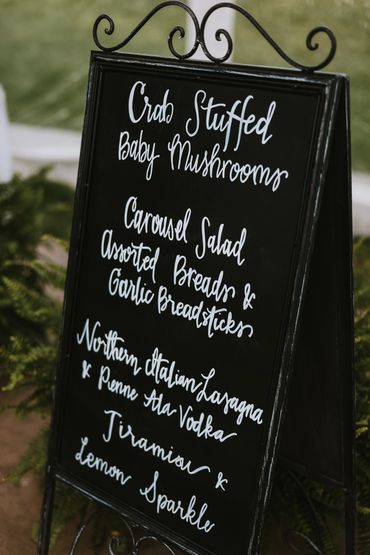 Crab Stuffed
Baby Mushrooms
Carousel Salad
Assorted Breads &
Garlic Breadsticks
Northern Italian Lasagna
& Penne Ala-Vodka
Tiramisu &
Lemon Sparkle